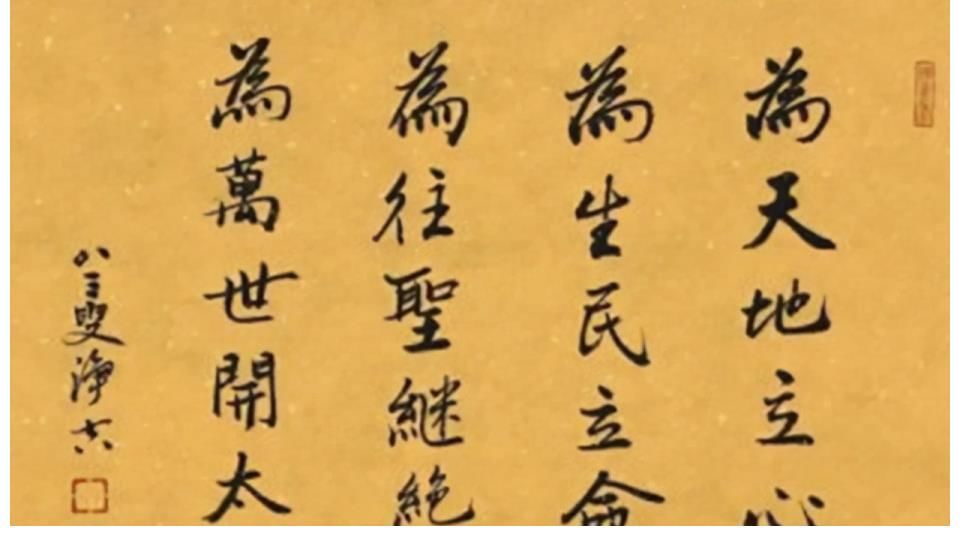 為天地立心
為生民立命
為往聖継絶
為萬世開太
八三叟淨空